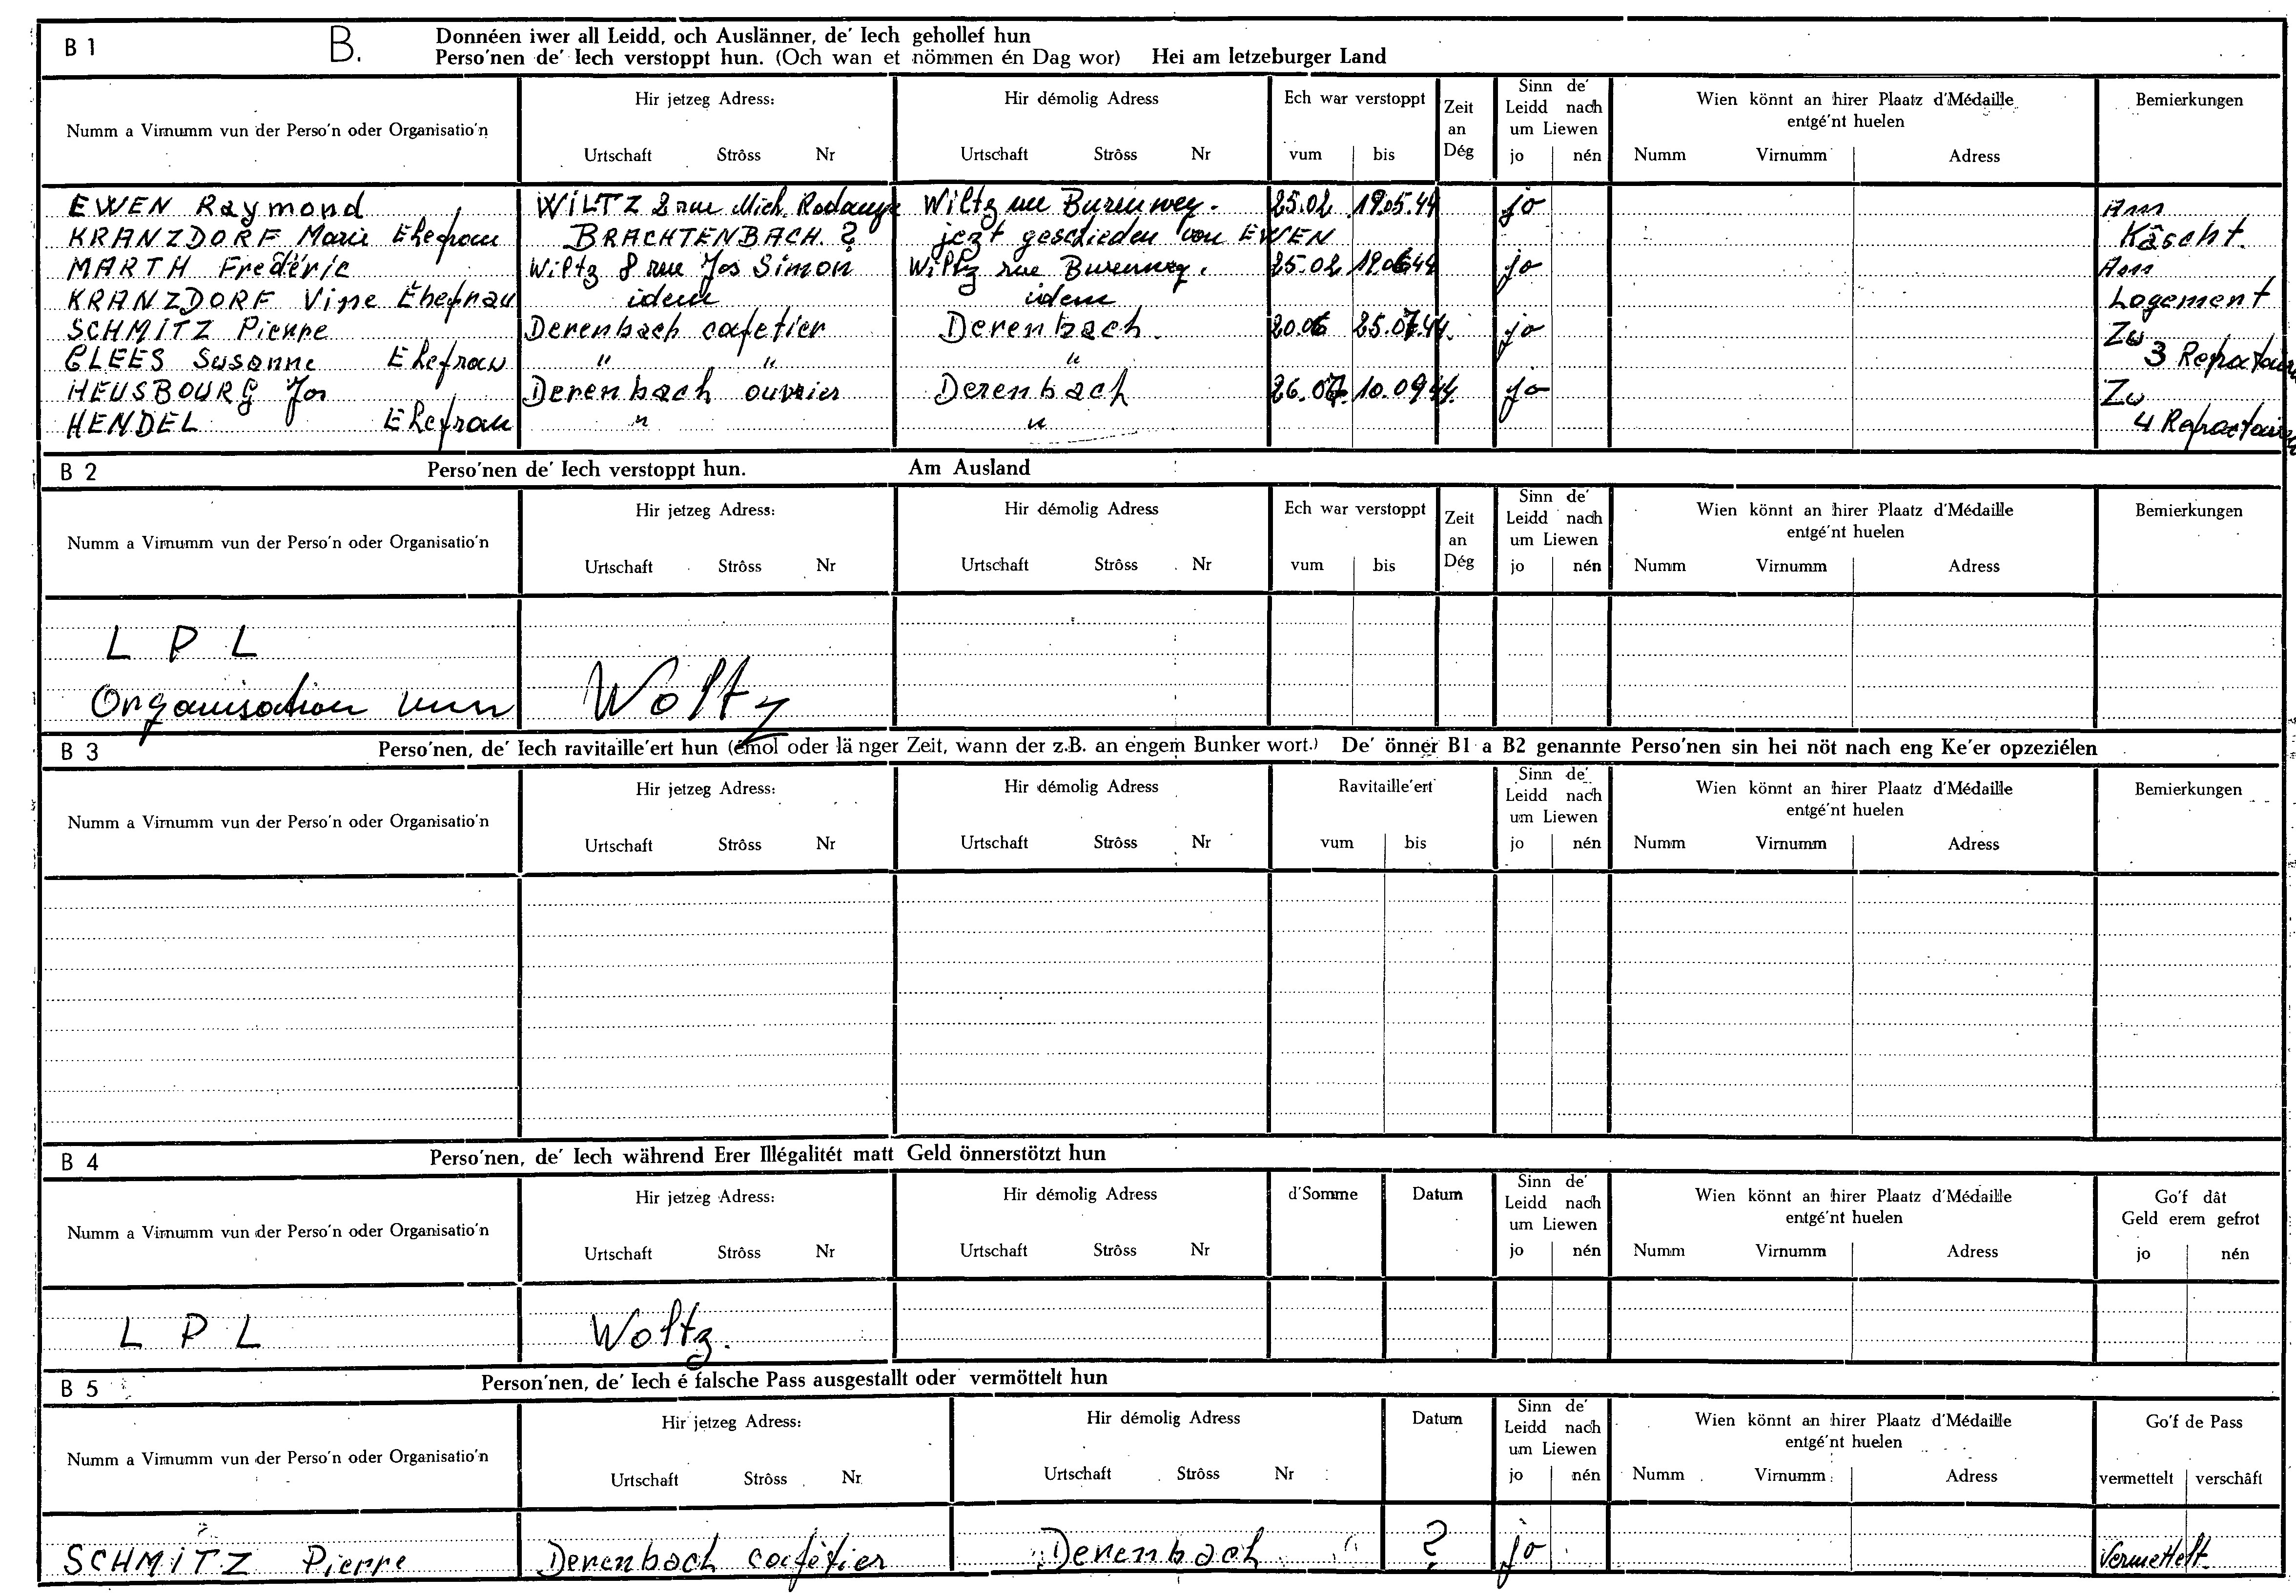 B 1 B. Donnéen iwer all Leidd, och Auslänner, de' Iech gehollef hun
Perso'nen de' Iech verstoppt hun. (Och wan et nömmen én Dag wor) Hei am letzeburger Land
Numm a Virnumm vun der Perso'n oder Organisatio'n
Hir jetzeg Adress:
Urtschaft Strôss Nr
Hir démolig Adress
Urtschaft Strôss Nr
Ech war verstoppt
vum bis
Zeit
an
Dég
Sinn de'
Leidd nach
um Liewen
jo nén
Wien könnt an hirer Plaatz d'Médaille
entgé'nt huelen
Numm Virnumm Adress
Bemierkungen
EWEN Raymond WILTZ 2 rue Mich. Rodange Wiltz rue Burenweg. 25.02 19.05.44 jo Am
KRANZDORF Marie Ehefrau BRACHTENBACH. ? jezt geschieden von EWEN Käscht.
MARTH Frédéric Wiltz 8 rue Jos Simon Wiltz rue Burenweg. 25.02 19.06.44 jo Am
KRANZDORF Vine Ehefrau idem idem Logement
SCHMITZ Pierre Derenbach cafetier Derenbach. 20.06 25.07.44. jo Zu
GLEES Susanne Ehefrau " " " 3 Refractaire
HEUSBOURG Jos Derenbach ouvrier Derenbach 26.07. 10.09 44. jo Zu
HENDEL Ehefrau " " 4 Refractaire
B 2 Perso'nen de' Iech verstoppt hun. Am Ausland
Numm a Virnumm vun der Perso'n oder Organisatio'n
Hir jetzeg Adress:
Urtschaft Strôss Nr
Hir démolig Adress
Urtschaft Strôss Nr
Ech war verstoppt
vum bis
Zeit
an
Dég
Sinn de'
Leidd nach
um Liewen
jo nén
Wien könnt an hirer Plaatz d'Médaille
entgé'nt huelen
Numm Virnumm Adress
Bemierkungen
L P L
Organisation vun Woltz
B 3 Perso'nen, de' Iech ravitaille'ert hun (émol oder länger Zeit, wann der z.B. an engem Bunker wort.) De' önner B1 a B2 genannte Perso'nen sin hei nöt nach eng Ke'er opzeziélen
Numm a Virnumm vun der Perso'n oder Organisatio'n
Hir jetzeg Adress:
Urtschaft Strôss Nr
Hir démolig Adress
Urtschaft Strôss Nr
Ravitaille'ert
vum bis
Sinn de'
Leidd nach
um Liewen
jo nén
Wien könnt an hirer Plaatz d'Médaille
entgé'nt huelen
Numm Virnumm Adress
Bemierkungen
B 4 Perso'nen, de' Iech während Erer Illégalitét matt Geld önnerstötzt hun
Numm a Virnumm vun der Perso'n oder Organisatio'n
Hir jetzeg Adress:
Urtschaft Strôss Nr
Hir démolig Adress
Urtschaft Strôss Nr
d'Somme
Datum
Sinn de'
Leidd nach
um Liewen
jo nén
Wien könnt an hirer Plaatz d'Médaille
entgé'nt huelen
Numm Virnumm Adress
Go'f dât
Geld erem gefrot
jo nén
L P L Woltz.
B 5 Person'nen, de' Iech é falsche Pass ausgestallt oder vermöttelt hun
Numm a Virnumm vun der Perso'n oder Organisatio'n
Hir jetzeg Adress:
Urtschaft Strôss Nr
Hir démolig Adress
Urtschaft Strôss Nr
Datum
Sinn de'
Leidd nach
um Liewen
jo nén
Wien könnt an hirer Plaatz d'Médaille
entgé'nt huelen
Numm Virnumm Adress
Go'f de Pass
vermettelt verschâft
SCHMITZ Pierre Derenbach cafétier Derenbach ? jo Vermettelt